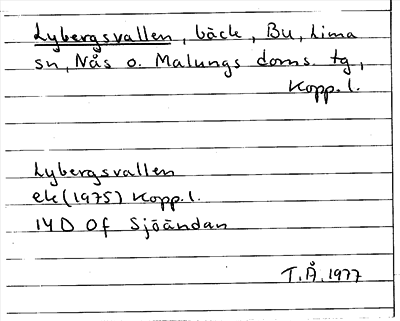 Lybergsvallen, bäck, Bu, Lima
sn, Nås o. Malungs doms. tg,
Kopp. l.
Lybergsvallen
ek (1975) Kopp. l.
14D 0f Sjöändan
T.Å. 1977